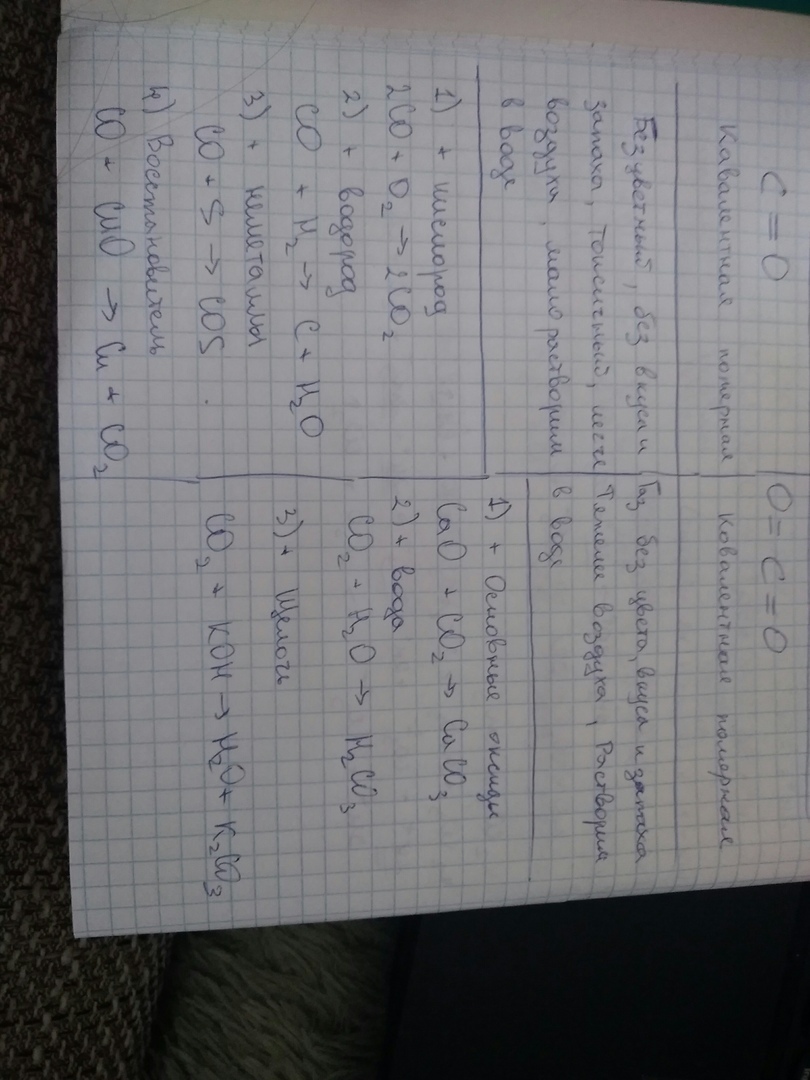 C=O
Кавалентная полярная
Безцветный, без вкуса и
запаха, Токсичный, легче
воздуха, мало растворим
в воде
1) + кислород
2CO + O₂ → 2CO₂
2) + водород
CO + H₂ → C + H₂O
3) + неметаллы
CO + S → COS
4) Восстановитель
CO + CuO → Cu + CO₂
O=C=O
Ковалентная полярная
Газ без цвета, вкуса и запаха
Тяжелее воздуха, Растворим
в воде
1) + Основные оксиды
CaO + CO₂ → CaCO₃
2) + вода
CO₂ + H₂O → H₂CO₃
3) + Щелочь
CO₂ + KOH → H₂O + K₂CO₃